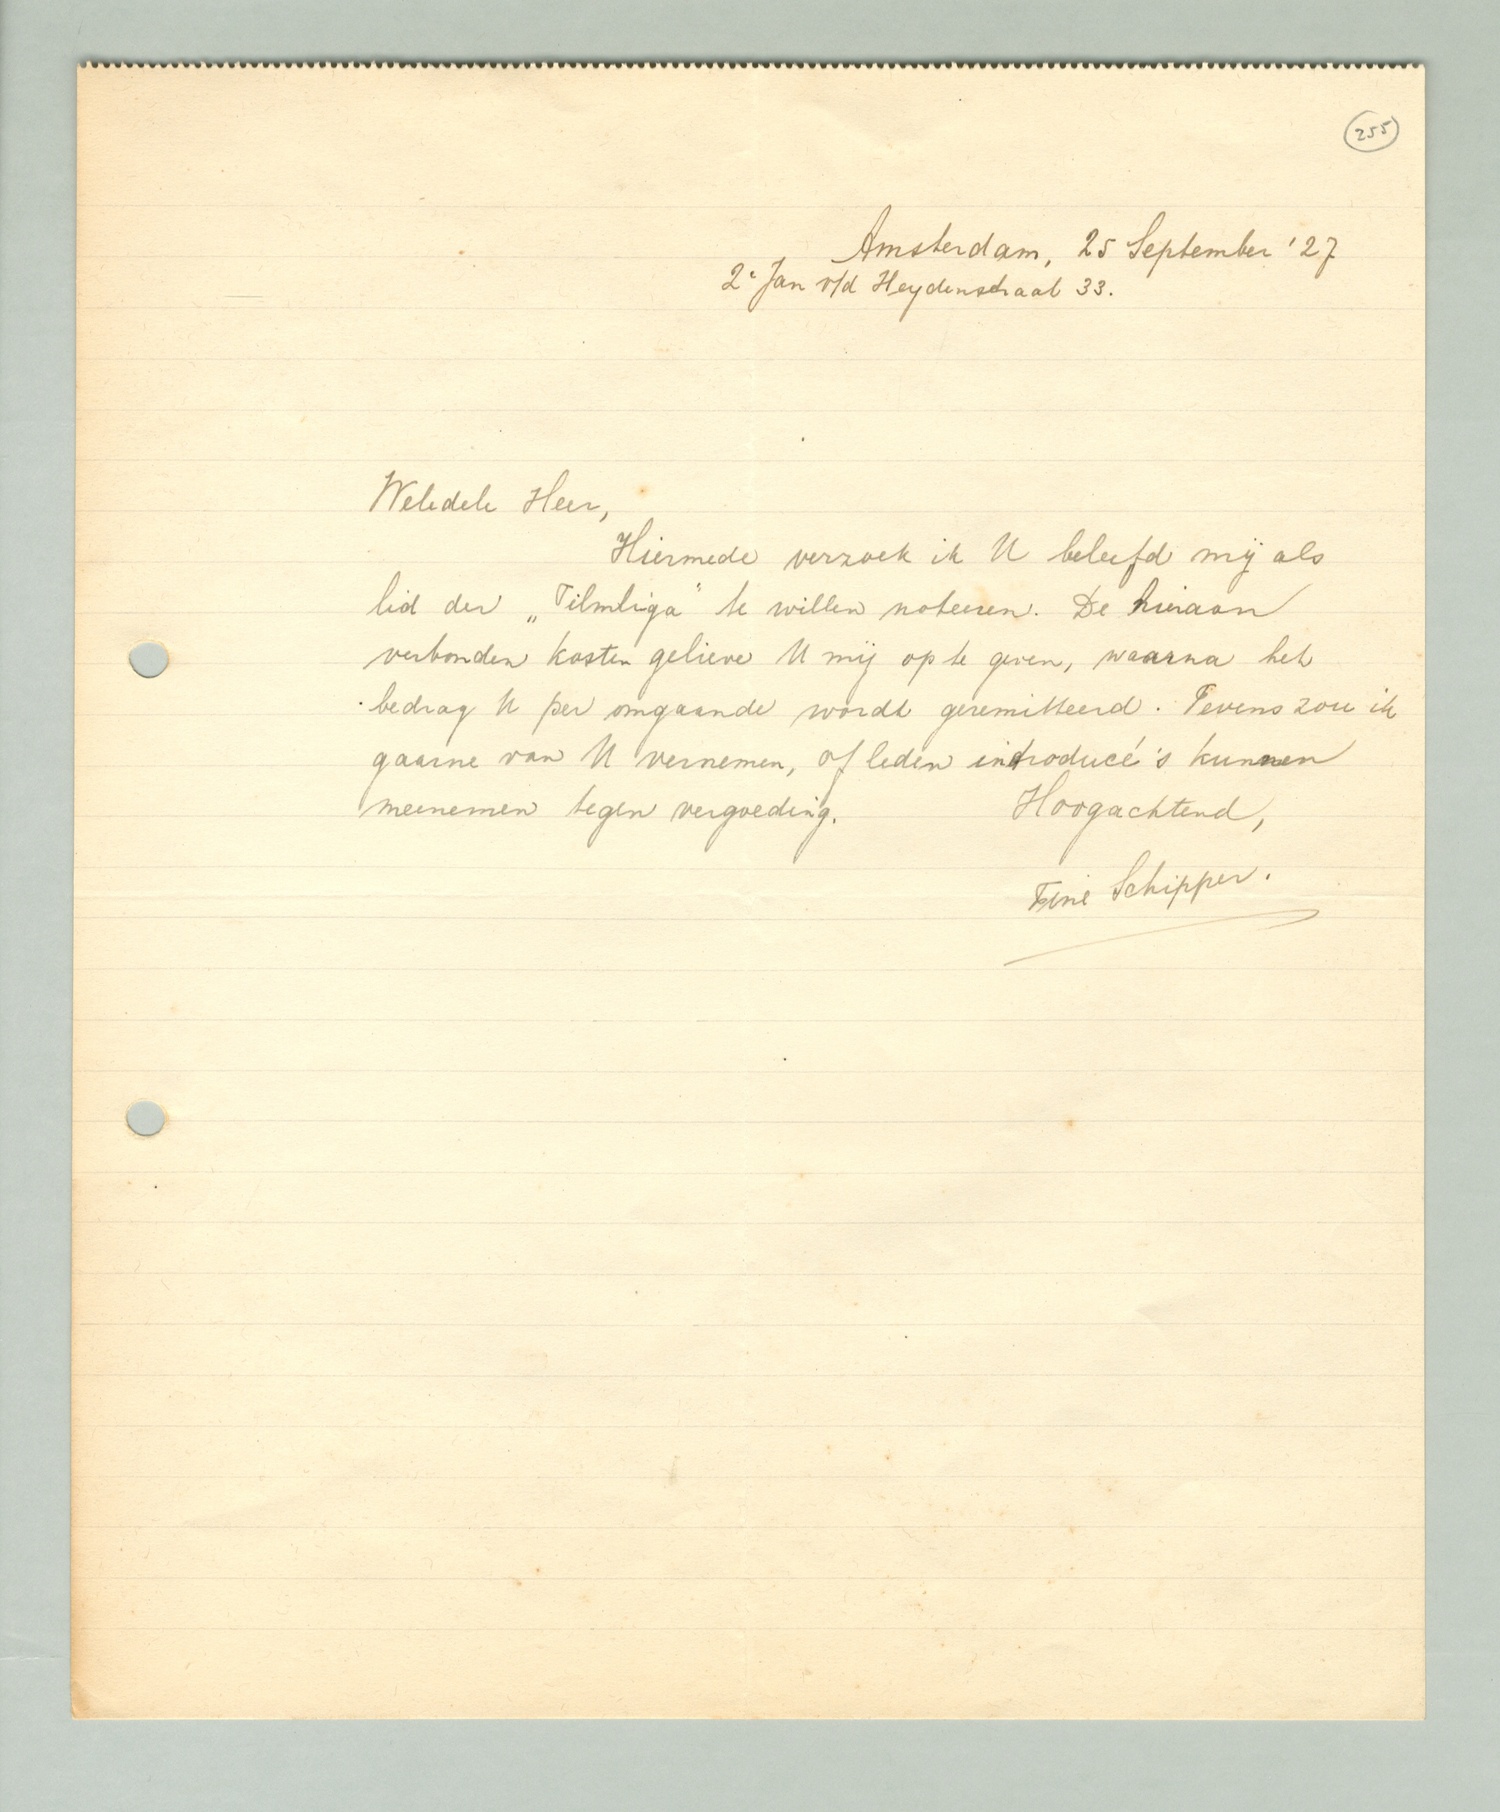 255
Amsterdam, 25 September '27
2e Jan v/d Heydenstraat 33.
Weledele Heer,
Hiermede verzoek ik U beleefd mij als
lid der „Filmliga" te willen noteeren. De hieraan
verbonden kosten gelieve U mij op te geven, waarna het
bedrag U per omgaande wordt geremitteerd. Tevens zou ik
gaarne van U vernemen, of leden introducé's kunnen
meenemen tegen vergoeding. Hoogachtend,
Schipper.